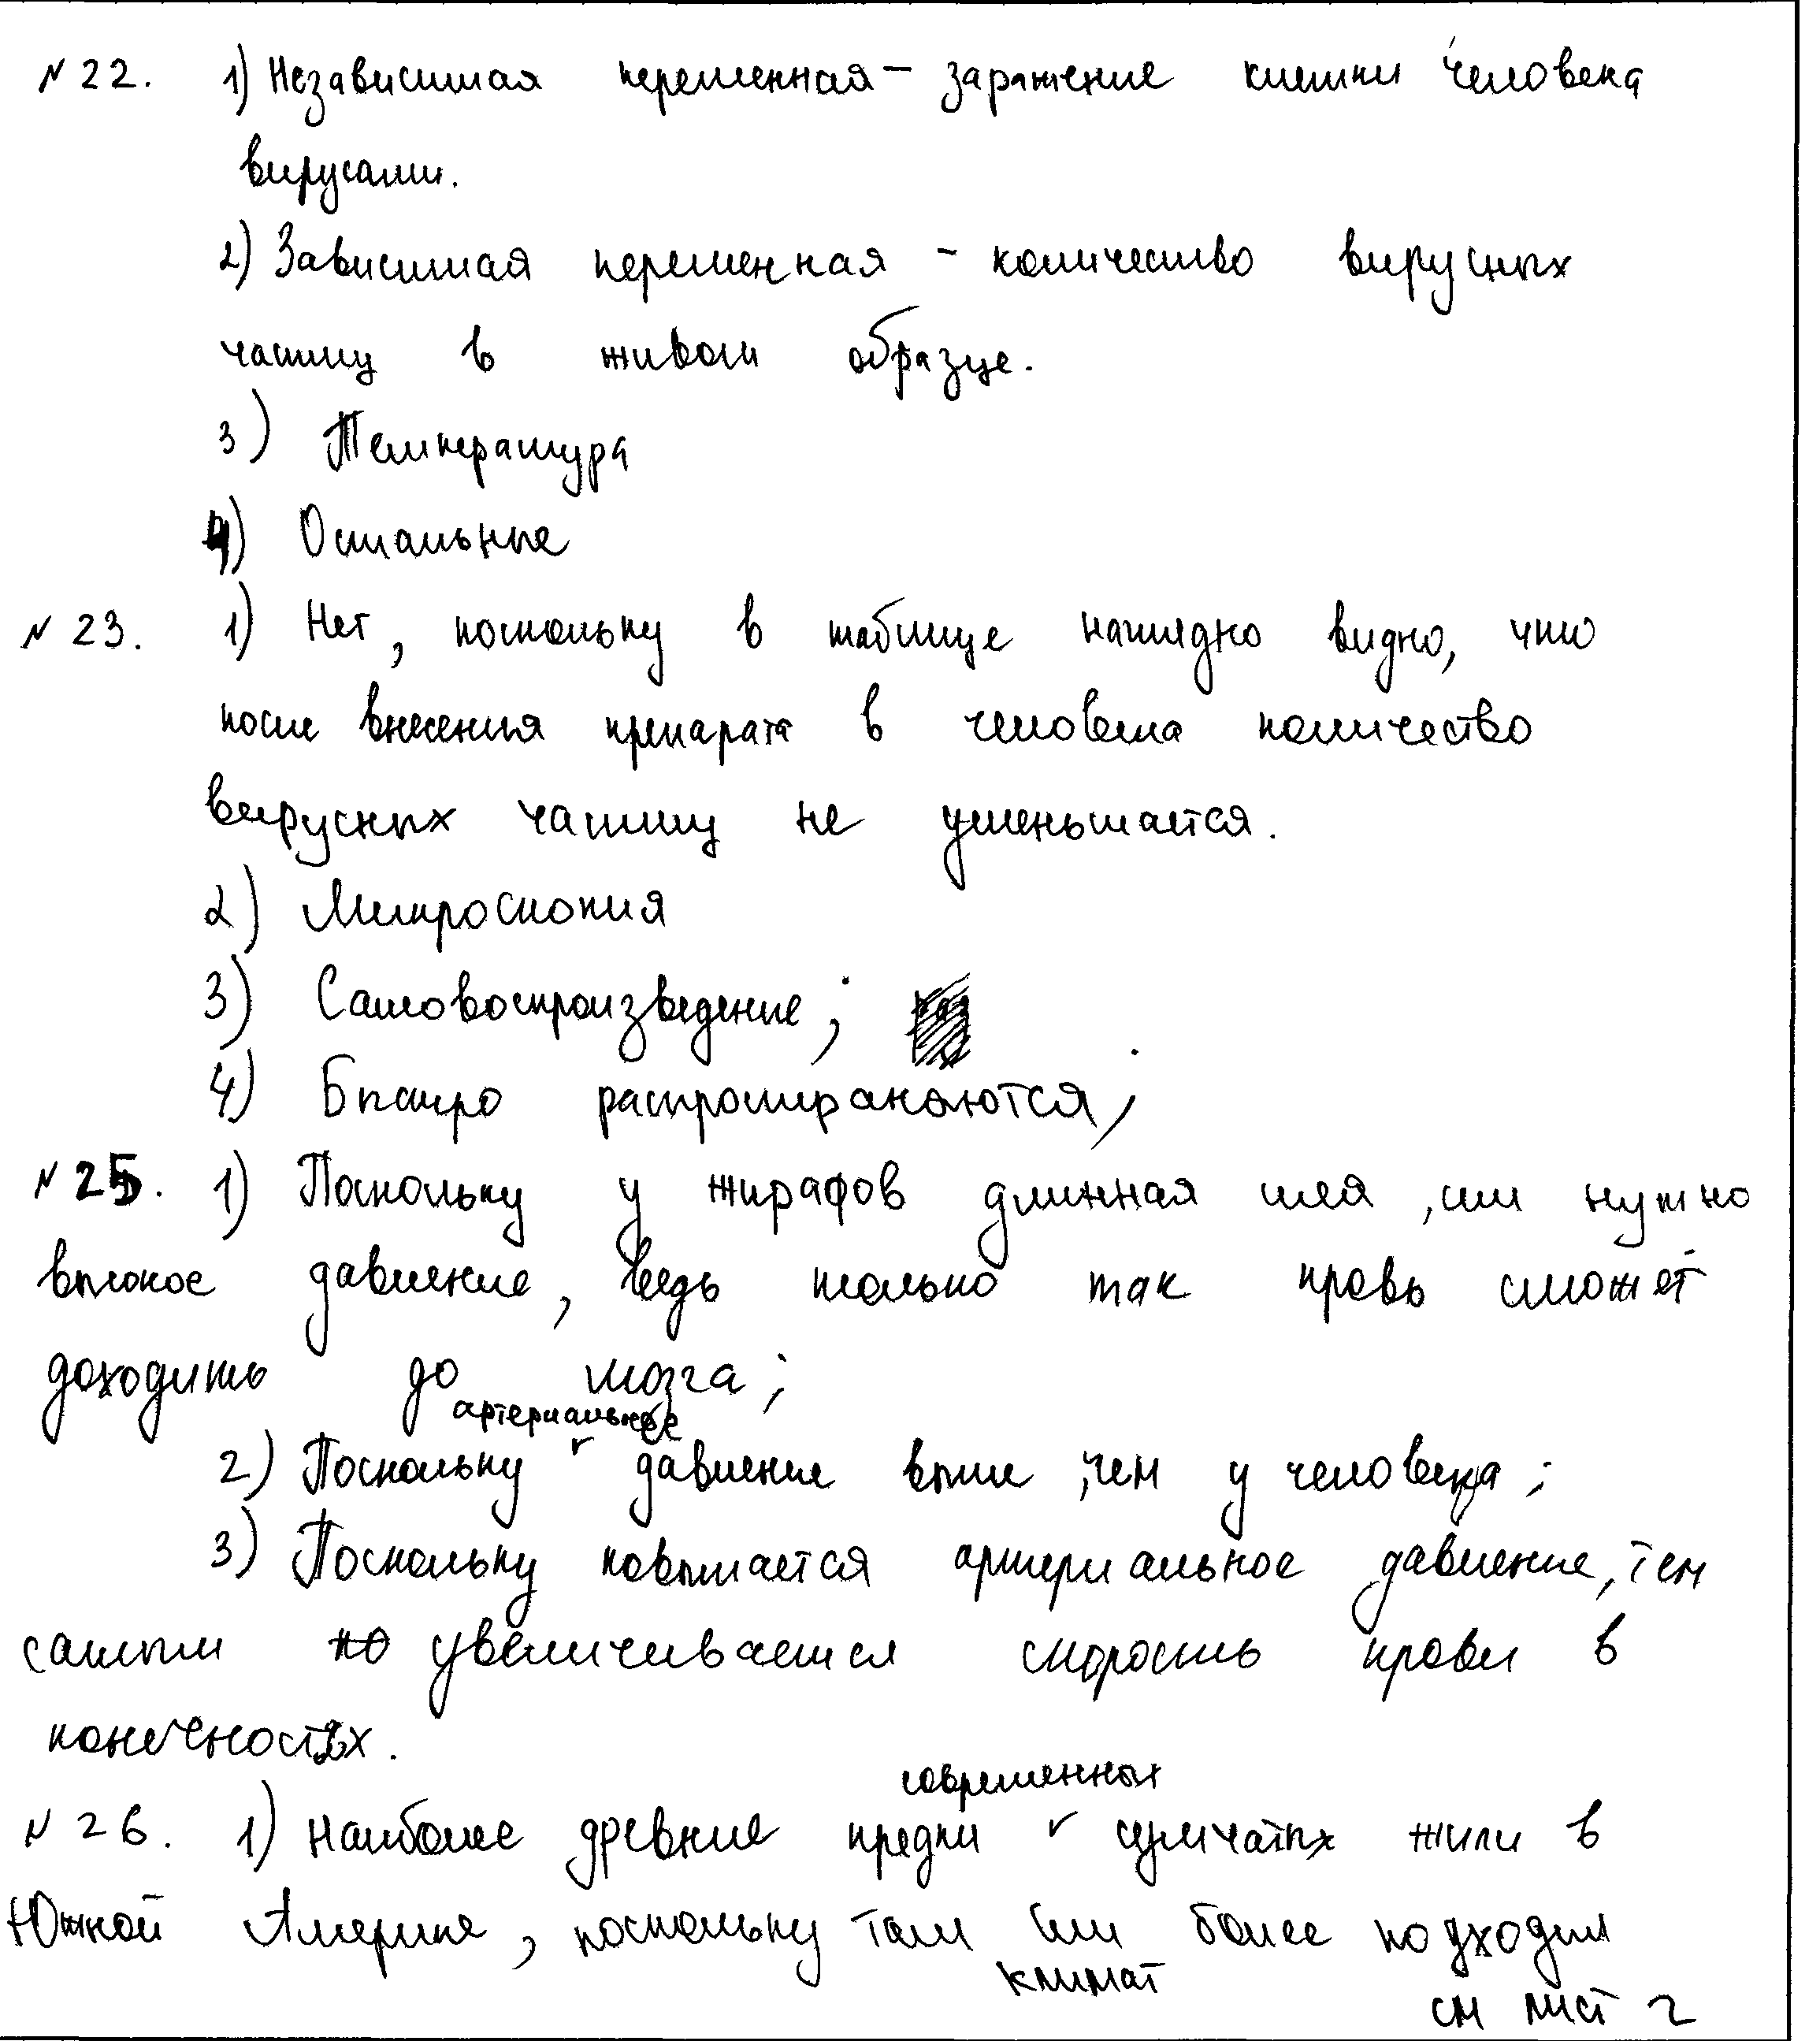 № 22. 1) Независимая переменная – заражение клетки человека
вирусами.
2) Зависимая переменная – количество вирусных
частиц в живом образце.
3) Температура
4) Остальные
№ 23. 1) Нет, поскольку в таблице наглядно видно, что
после внесения препарата в человека количество
вирусных частиц не уменьшается.
2) Микроскопия
3) Самовоспроизведение;
4) Быстро распространяются;
№ 25. 1) Поскольку у жирафов длинная шея, им нужно
высокое давление, ведь только так кровь сможет
доходить до мозга;
артериальное
2) Поскольку ᵛ давление выше, чем у человека;
3) Поскольку повышается артериальное давление, тем
самым увеличивается скорость крови в
конечностях.
современных
№ 26. 1) Наиболее древние предки ᵛ сумчатых жили в
Южной Америке, поскольку там им более подходил
климат
см лист 2